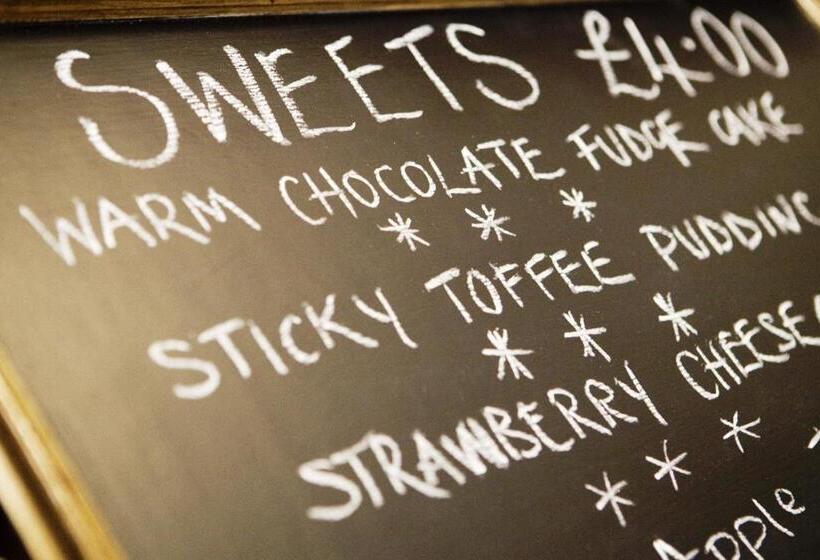 SWEETS £4.00
WARM CHOCOLATE FUDGE CAKE
* * *
STICKY TOFFEE PUDDING
* * *
STRAWBERRY CHEESE
* * *
Apple